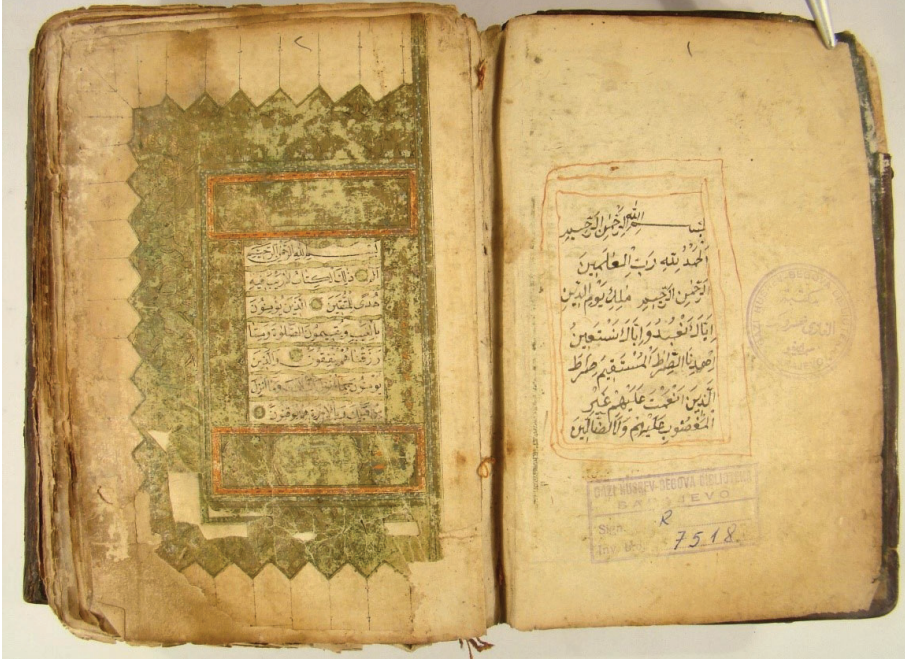 ١
بسم الله الرحمن الرحيم
الحمد لله رب العلمين
الرحمن الرحيم ملك يوم الدين
اياك نعبد واياك نستعين
اهدنا الصراط المستقيم صراط
الذين انعمت عليهم غير
المغضوب عليهم ولا الضالين
GAZI HUSREV-BEGOVA BIBLIOTEKA
SARAJEVO
Sign. R
Inv. br. 7518
٢
بسم الله الرحمن الرحيم
الم ذلك الكتاب لا ريب فيه
هدى للمتقين الذين يؤمنون
بالغيب ويقيمون الصلوة ومما
رزقناهم ينفقون والذين
يؤمنون بما انزل اليك وما انزل
من قبلك وبالاخرة هم يوقنون